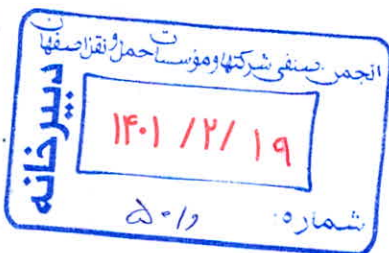 انجمن صنفی شرکتها و موسسات حمل و نقل اصفهان
دبیرخانه
۱۴۰۱ /۲/ ۱۹
شماره